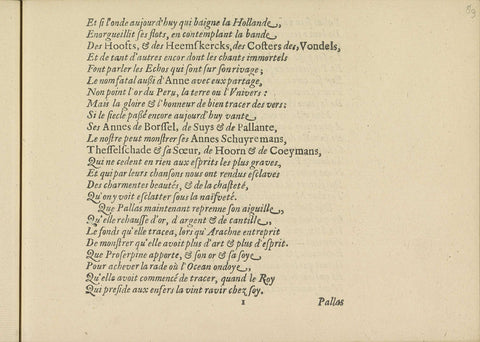 Et ſi l'onde aujourd'huy qui baigne la Hollande,
Enorgueillit ſes flots, en contemplant la bande
Des Hoofts, & des Heemſkercks, des Coſters des, Vondels,
Et de tant d'autres encor dont les chants immortels
Font parler les Echos qui ſont ſur ſon rivage;
Le nom fatal auſſi d'Anne avec eux partage,
Non point l'or du Peru, la terre ou l'Vnivers:
Mais la gloire & l'honneur de bien tracer des vers:
Si le ſiecle paſſé encore aujourd'huy vante
Ses Annes de Borſſel, de Suys & de Pallante,
Le noſtre peut monſtrer ſes Annes Schuyremans,
Theſſelſchade & ſa Sœur, de Hoorn & de Coeymans,
Qui ne cedent en rien aux eſprits les plus graves,
Et qui par leurs chanſons nous ont rendus eſclaves
Des charmentes beautés, & de la chaſteté,
Qu'on voit eſclatter ſous la naïſveté.
Que Pallas maintenant reprenne ſon aiguille,
Qu'elle rehauſſe d'or, d'argent & de cantille,
Le fonds qu'elle tracea, lors qu'Arachne entreprit
De monſtrer qu'elle avoit plus d'art & plus d'eſprit.
Que Proſerpine apporte, & ſon or & ſa ſoye
Pour achever la rade où l'Ocean ondoye,
Qu'elle avoit commencé de tracer, quand le Roy
Qui preſide aux enfers la vint ravir chez ſoy.
1 Pallas